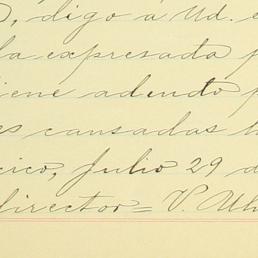 , digo á Ud. e
la expresada p
iene adendo p
es causadas h
ico, Julio 29 d
director = V. Uh